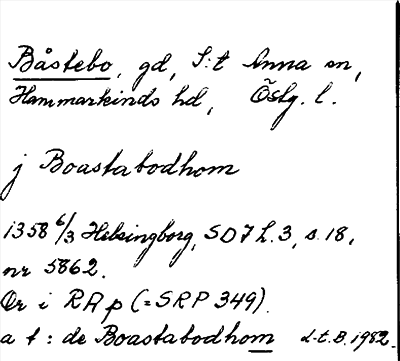 Båstebo, gd, S:t Anna sn,
Hammarkinds hd, Östg. l.
j Boastabodhom
1358 6/3 Helsingborg, SD 7 h. 3, s. 18,
nr 5862.
Or i RA p (=SRP 349).
a t : de Boastabodhom L.t.B. 1982.